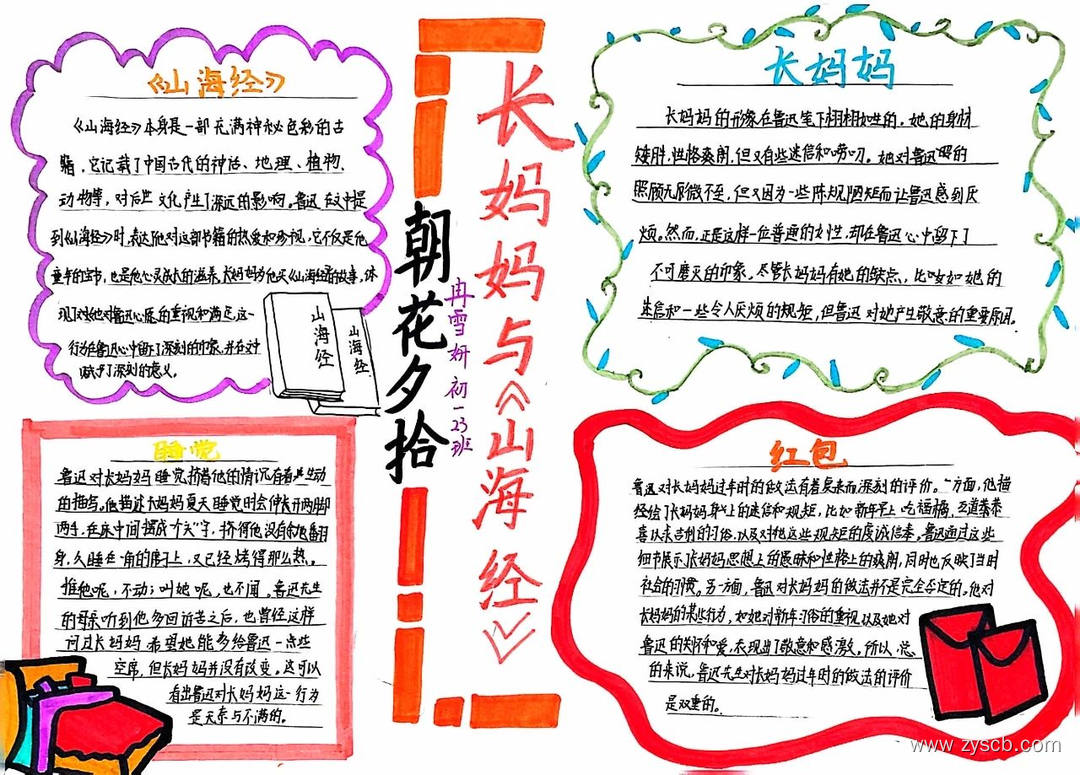 《山海经》
《山海经》本身是一部充满神秘色彩的古
籍，它记载了中国古代的神话、地理、植物、
动物等，对后世文化产生了深远的影响。鲁迅在文中提
到《山海经》时，表达他对这部书籍的热爱和珍视，它不仅是他
童年的宝书，也是他心灵成长的滋养。长妈妈为他买《山海经》的故事，体
现了对他对鲁迅心愿的重视和满足，这一
行为在鲁迅心中留下了深刻的印象，并在对
赋予了深刻的意义。
山海经
山海经
朝花夕拾
冉雪妍 初一23班
长妈妈与《山海经》
长妈妈
长妈妈的形象在鲁迅笔下栩栩如生的，她的身材
矮胖，性格爽朗，但又有些迷信和唠叨。她对鲁迅的
照顾无微不至，但又因为一些陈规陋矩而让鲁迅感到厌
烦。然而，正是这样一位普通的女性，却在鲁迅心中留下了
不可磨灭的印象。尽管长妈妈有她的缺点，比如如她的
迷信和一些令人厌烦的规矩，但鲁迅对她产生敬意的重要原因。
睡觉
鲁迅对长妈妈睡觉挤着他的情况有着生动
的描写。他描述长妈妈夏天睡觉时会伸长开两脚
两手，在床中间摆成个“大”字，挤得他没有余地翻
身，久睡在一角的席子上，又已经烤得那么热。
推他呢，不动；叫她呢，也不闻。鲁迅先生
的母亲听到他多回诉苦之后，也曾经这样
问过长妈妈希望她能多给鲁迅一点些
空席，但长妈妈并没有改变。这可以
看出鲁迅对长妈妈这一行为
是无奈与不满的。
红包
鲁迅对长妈妈过年时的做法有着复杂而深刻的评价。一方面，他描
绘了长妈妈身上的迷信和规矩，比如新年早上吃福橘，互道恭恭
喜以求吉利的习俗，以及对她这些规矩的虔诚信奉。鲁迅通过这些
细节展示长妈妈思想上的愚昧和性格上的爽朗，同时也反映了当时
社会的习惯。另一方面，鲁迅对长妈妈的做法并不是完全否定的。他对
长妈妈的某些行为，如她对新年习俗的重视以及她对
鲁迅的关怀和爱，表现出了敬意和感激，所以，总
的来说，鲁迅先生对长妈妈过年时的做法的评价
是双重的。
www.zyscb.com